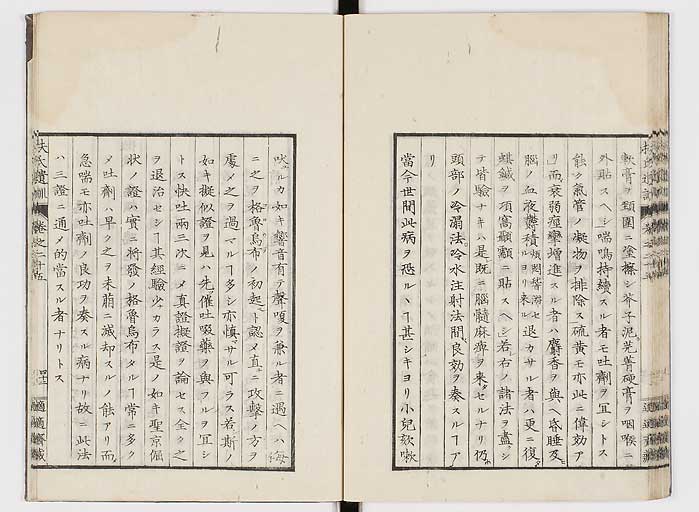 軟膏ヲ頸圍ニ塗擦シ芥子泥芫菁硬膏ヲ咽喉ニ
外貼スヘシ喘鳴持續スル者モ吐劑ヲ宜シトス
能ク氣管ノ凝物ヲ排除ス硫黄モ亦此ニ偉効ア
リ而衰弱痙攣增進スル者ハ麝香ヲ與ヘ昏睡及
腦ノ血液鬱積ヨリ來ル退カサル者ハ更ニ復
蜞鍼ヲ項窩顳顬ニ貼スヘシ若右ノ諸法ヲ盡シ
テ皆驗ナキハ是既ニ腦髓麻痺ヲ來セルナリ仍
頭部ノ冷溻法冷水注射法間良効ヲ奏スルヿア
リ
當今世間此病ヲ恐ルヽヿ甚シキヨリ小兒欬嗽
吠ルカ如キ響音有テ聲嗄ヲ兼ル者ニ遇ヘハ毎
ニ之ヲ格魯烏布ノ初起ト認メ直ニ攻擊ノ方ヲ
處メ之ヲ過マルヿ多シ亦慎マサル可ラス若斯ノ
如キ擬似證ヲ見ハ先催吐啜藥ノ與フルヲ宜シ
トス快吐兩三次ニメ真證擬證ヲ論セス全ク之
ヲ退治セシヿ其經驗少カラス是ノ如キ聖京倔
狀ノ證ハ實ニ將發ノ格魯烏布タルヿ常ニ多ク
メ吐劑ハ早ク之ヲ未萠ニ滅却スルノ能アリ而
急喘モ亦吐劑ノ良功ヲ奏スル病ナリ故ニ此法
ハ三證ニ通メ的當スル者ナリトス
扶氏遺訓 卷之二十五
適適齋藏